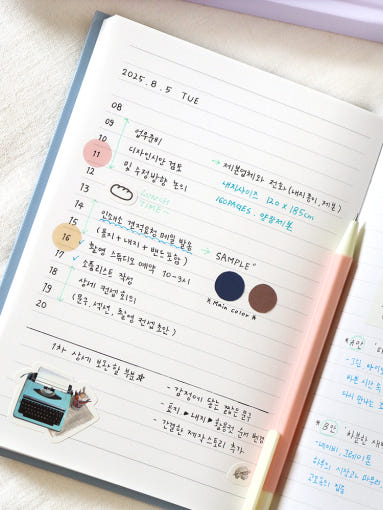 2025. 8. 5 TUE
08
09
10 업무준비
11 디자인시안 검토
12 및 수정방향 논의
→ 제본업체와 전화 (내지종이, 제본)
내지사이즈 120 × 185cm
160PAGES. 양장제본
13 LUNCH TIME
14
15 인쇄소 견적요청 메일 발송
16 (표지 + 내지 + 밴드포함)
→ SAMPLE"
17 ✓ 촬영 스튜디오 예약 10-3시
18 ✓ 소품리스트 작성
19 상세 컨셉 회의
20 (문구, 섹션, 촬영 컨셉 초안)
* Main color *
1차 상세 보완할 부분
- 감정에 닿는 짧은 문구
- 표지 ▶ 내지 ▶ 활용컷 순서 변경
- 간결한 제작스토리 추가
*A안
*B안 '차분한
- 네이비, 그레이톤
하루의 시작과 마무리